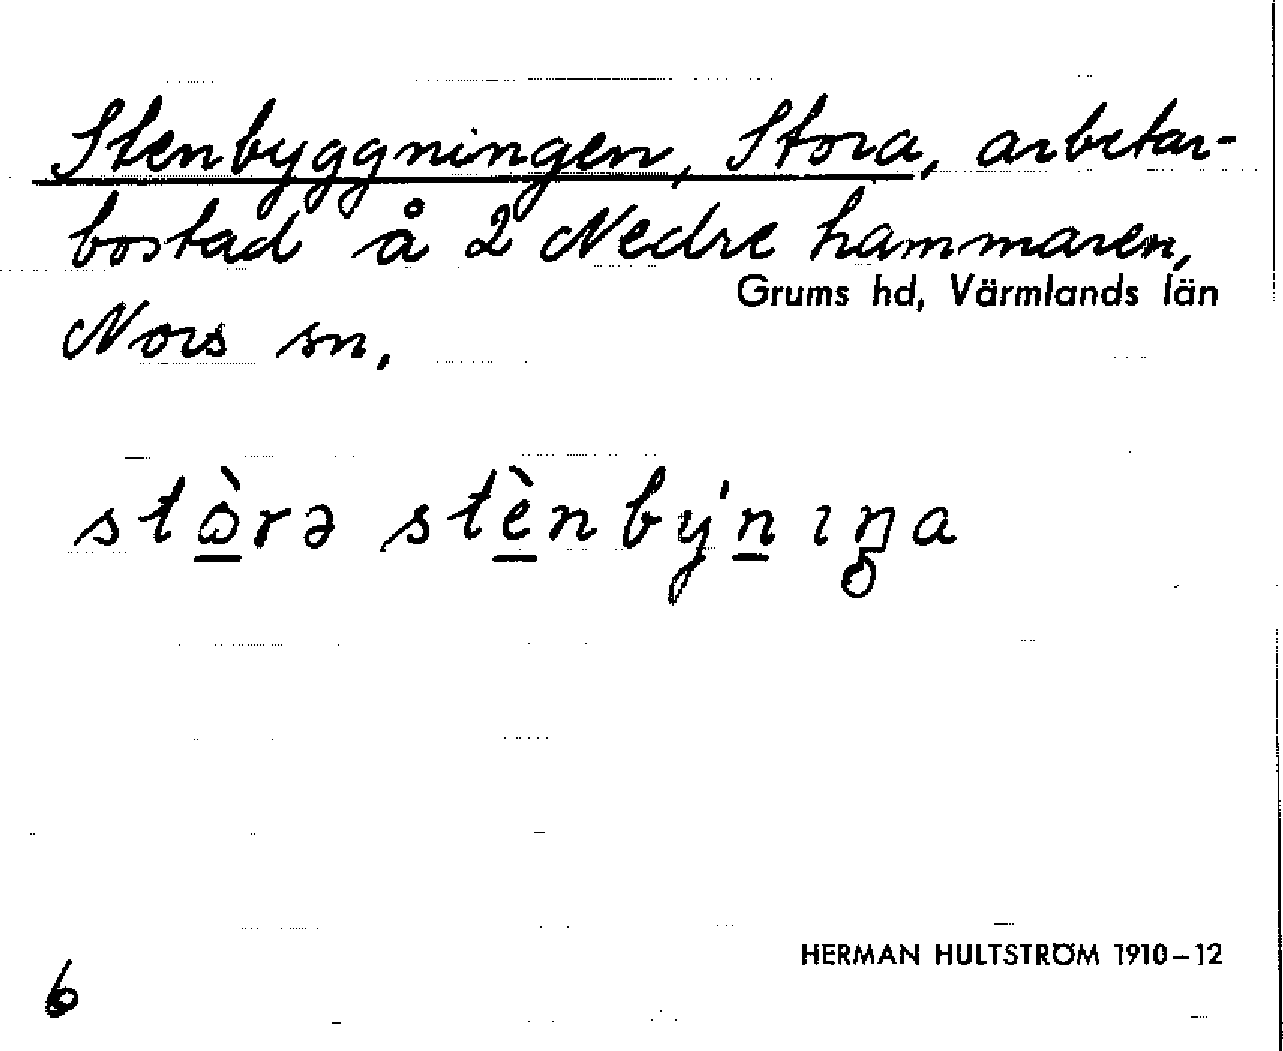 Stenbyggningen, Stora, arbetar-
bostad å 2 Nedre hammaren,
Grums hd, Värmlands län
Nors sn,
stò̱rə stè̱nbýṉ ıŋa
HERMAN HULTSTRÖM 1910–12
6